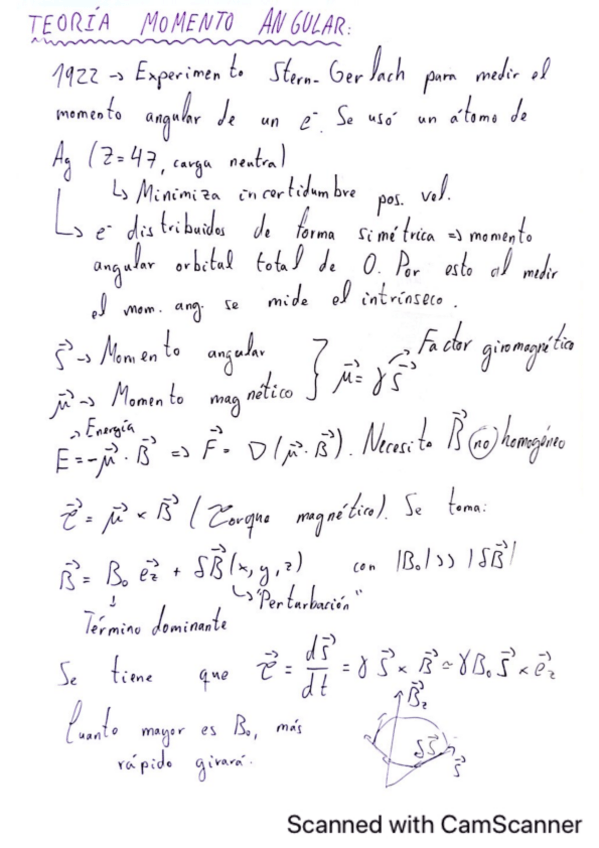 TEORÍA MOMENTO ANGULAR:
1922 → Experimento Stern-Gerlach para medir el
momento angular de un e⁻. Se usó un átomo de
Ag (Z=47, carga neutral)
↳ Minimiza incertidumbre pos. vel.
↳ e⁻ distribuidos de forma simétrica ⇒ momento
angular orbital total de 0. Por esto al medir
el mom. ang. se mide el intrínseco.
S⃗ → Momento angular
μ⃗ → Momento magnético } μ⃗ = γS⃗ → Factor giromagnético
→ Energía
E = -μ⃗·B⃗ ⇒ F⃗ = ∇(μ⃗·B⃗). Necesito B⃗ (no) homogéneo
τ⃗ = μ⃗ × B⃗ (Torque magnético). Se toma:
B⃗ = B₀ e⃗z + δB⃗(x,y,z) con |B₀| >> |δB⃗|
↳ "Perturbación"
↓
Término dominante
Se tiene que τ⃗ = dS⃗/dt = γ S⃗ × B⃗ ≃ γB₀ S⃗ × e⃗z
Cuanto mayor es B₀, más
rápido girará.
B⃗z
δS⃗
S⃗
Scanned with CamScanner